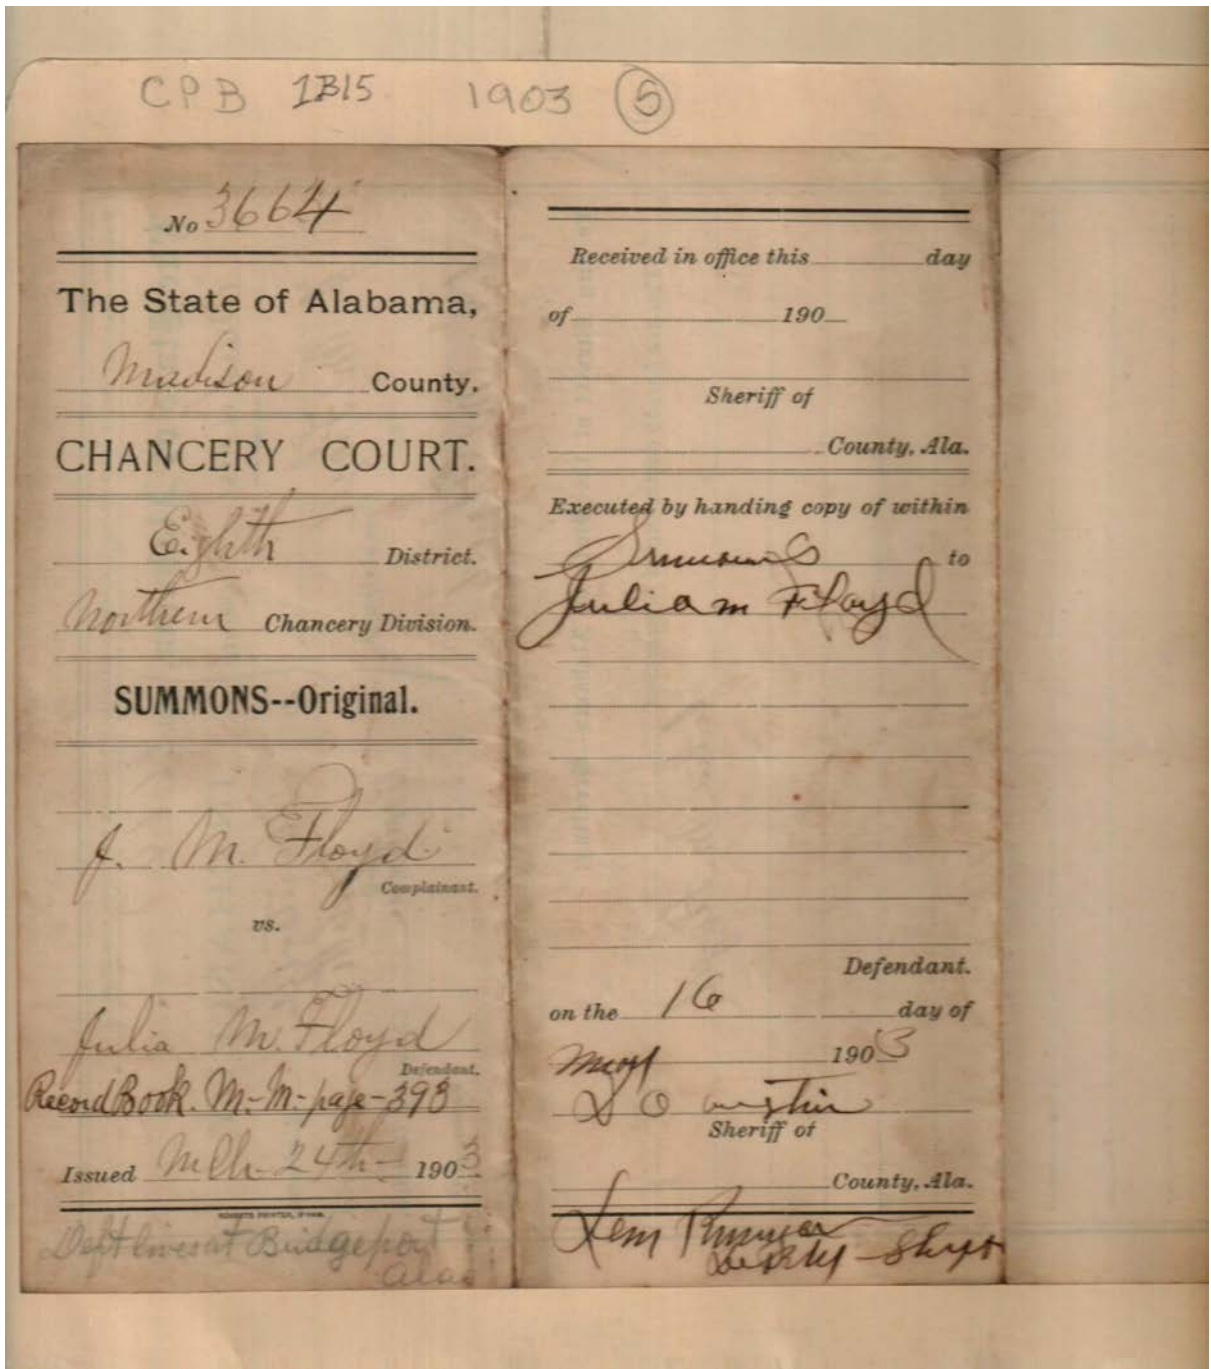 CPB 1B15 1903 5
No 3664
The State of Alabama,
Madison County.
CHANCERY COURT.
Eighth District.
Northern Chancery Division.
SUMMONS--Original.
J. M. Floyd
Complainant.
vs.
Julia M. Floyd
Defendant.
Record Book. M.-M- page-393
Issued Mch- 24th- 1903
Deft lives at Bridgeport
Alas
Received in office this day
of 190
Sheriff of
County, Ala.
Executed by handing copy of within
Summons to
Julia m Floyd
Defendant.
on the 16 day of
1903
D O Austin
Sheriff of
County, Ala.
Lem
Deputy - Shff